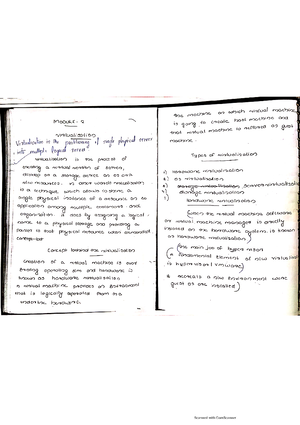 MODULE - 2
VIRTUALIZATION
Virtualization is the partitioning of single physical server
into multiple logical servers
virtualization is the process of
creating a virtual version of
a storage device an OS
In other words virtualization
is a technique, which allows to share a
single physical instance of a resource
application among multiple customers and
organization. It does by assigning a logical
name to a physical storage and providing a
pointer to that physical resource when demanded
Concept behind the virtualization
Creation of a virtual machine is over
existing operating sys and hardware is
known as hardware virtualization
a virtual machine provides an environment
that is logically separated from the
underline hardware.
the machine on which virtual machine
is going to create host machine and
that virtual machine is referred as guest
machine
Types of virtualization
1) hardware virtualization
2) OS virtualization
3) server virtualization
4) storage virtualization
hardware virtualization
when the virtual machine software
or virtual machine manager is directly
installed on the hardware system is known
as hardware virtualization
The main job of hypervisor
Fundamental element of
is hypervisor
It recreates a new environment where
guest OS are installed
Scanned with CamScanner